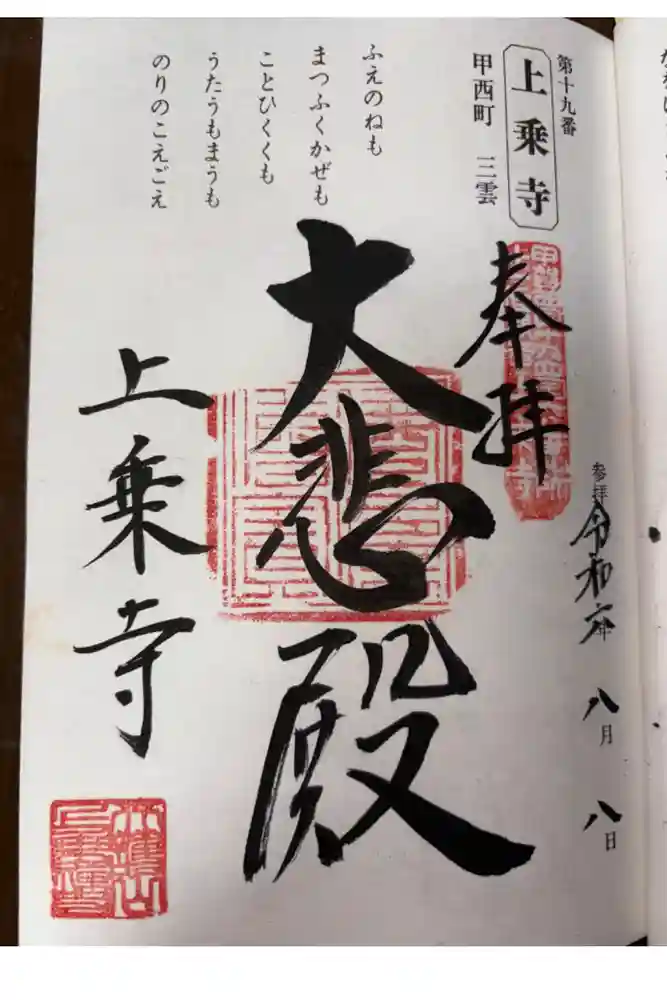 第十九番
上乗寺
甲西町 三雲
ふえのねも
まつふくかぜも
ことひくくも
うたうもまうも
のりのこえごえ
参拝 令和六年 八月 八日
奉拝
大悲殿
上乗寺